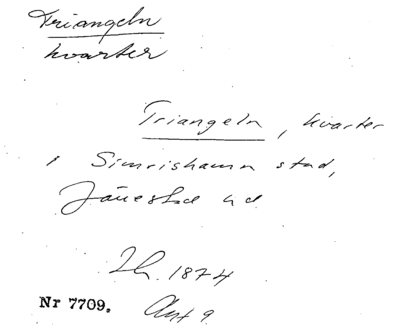 Triangeln
kvarter
Triangeln, kvarter
i Simrishamn stad,
Järrestad hd
Lh. 1874
Nr 7709. Avt 9